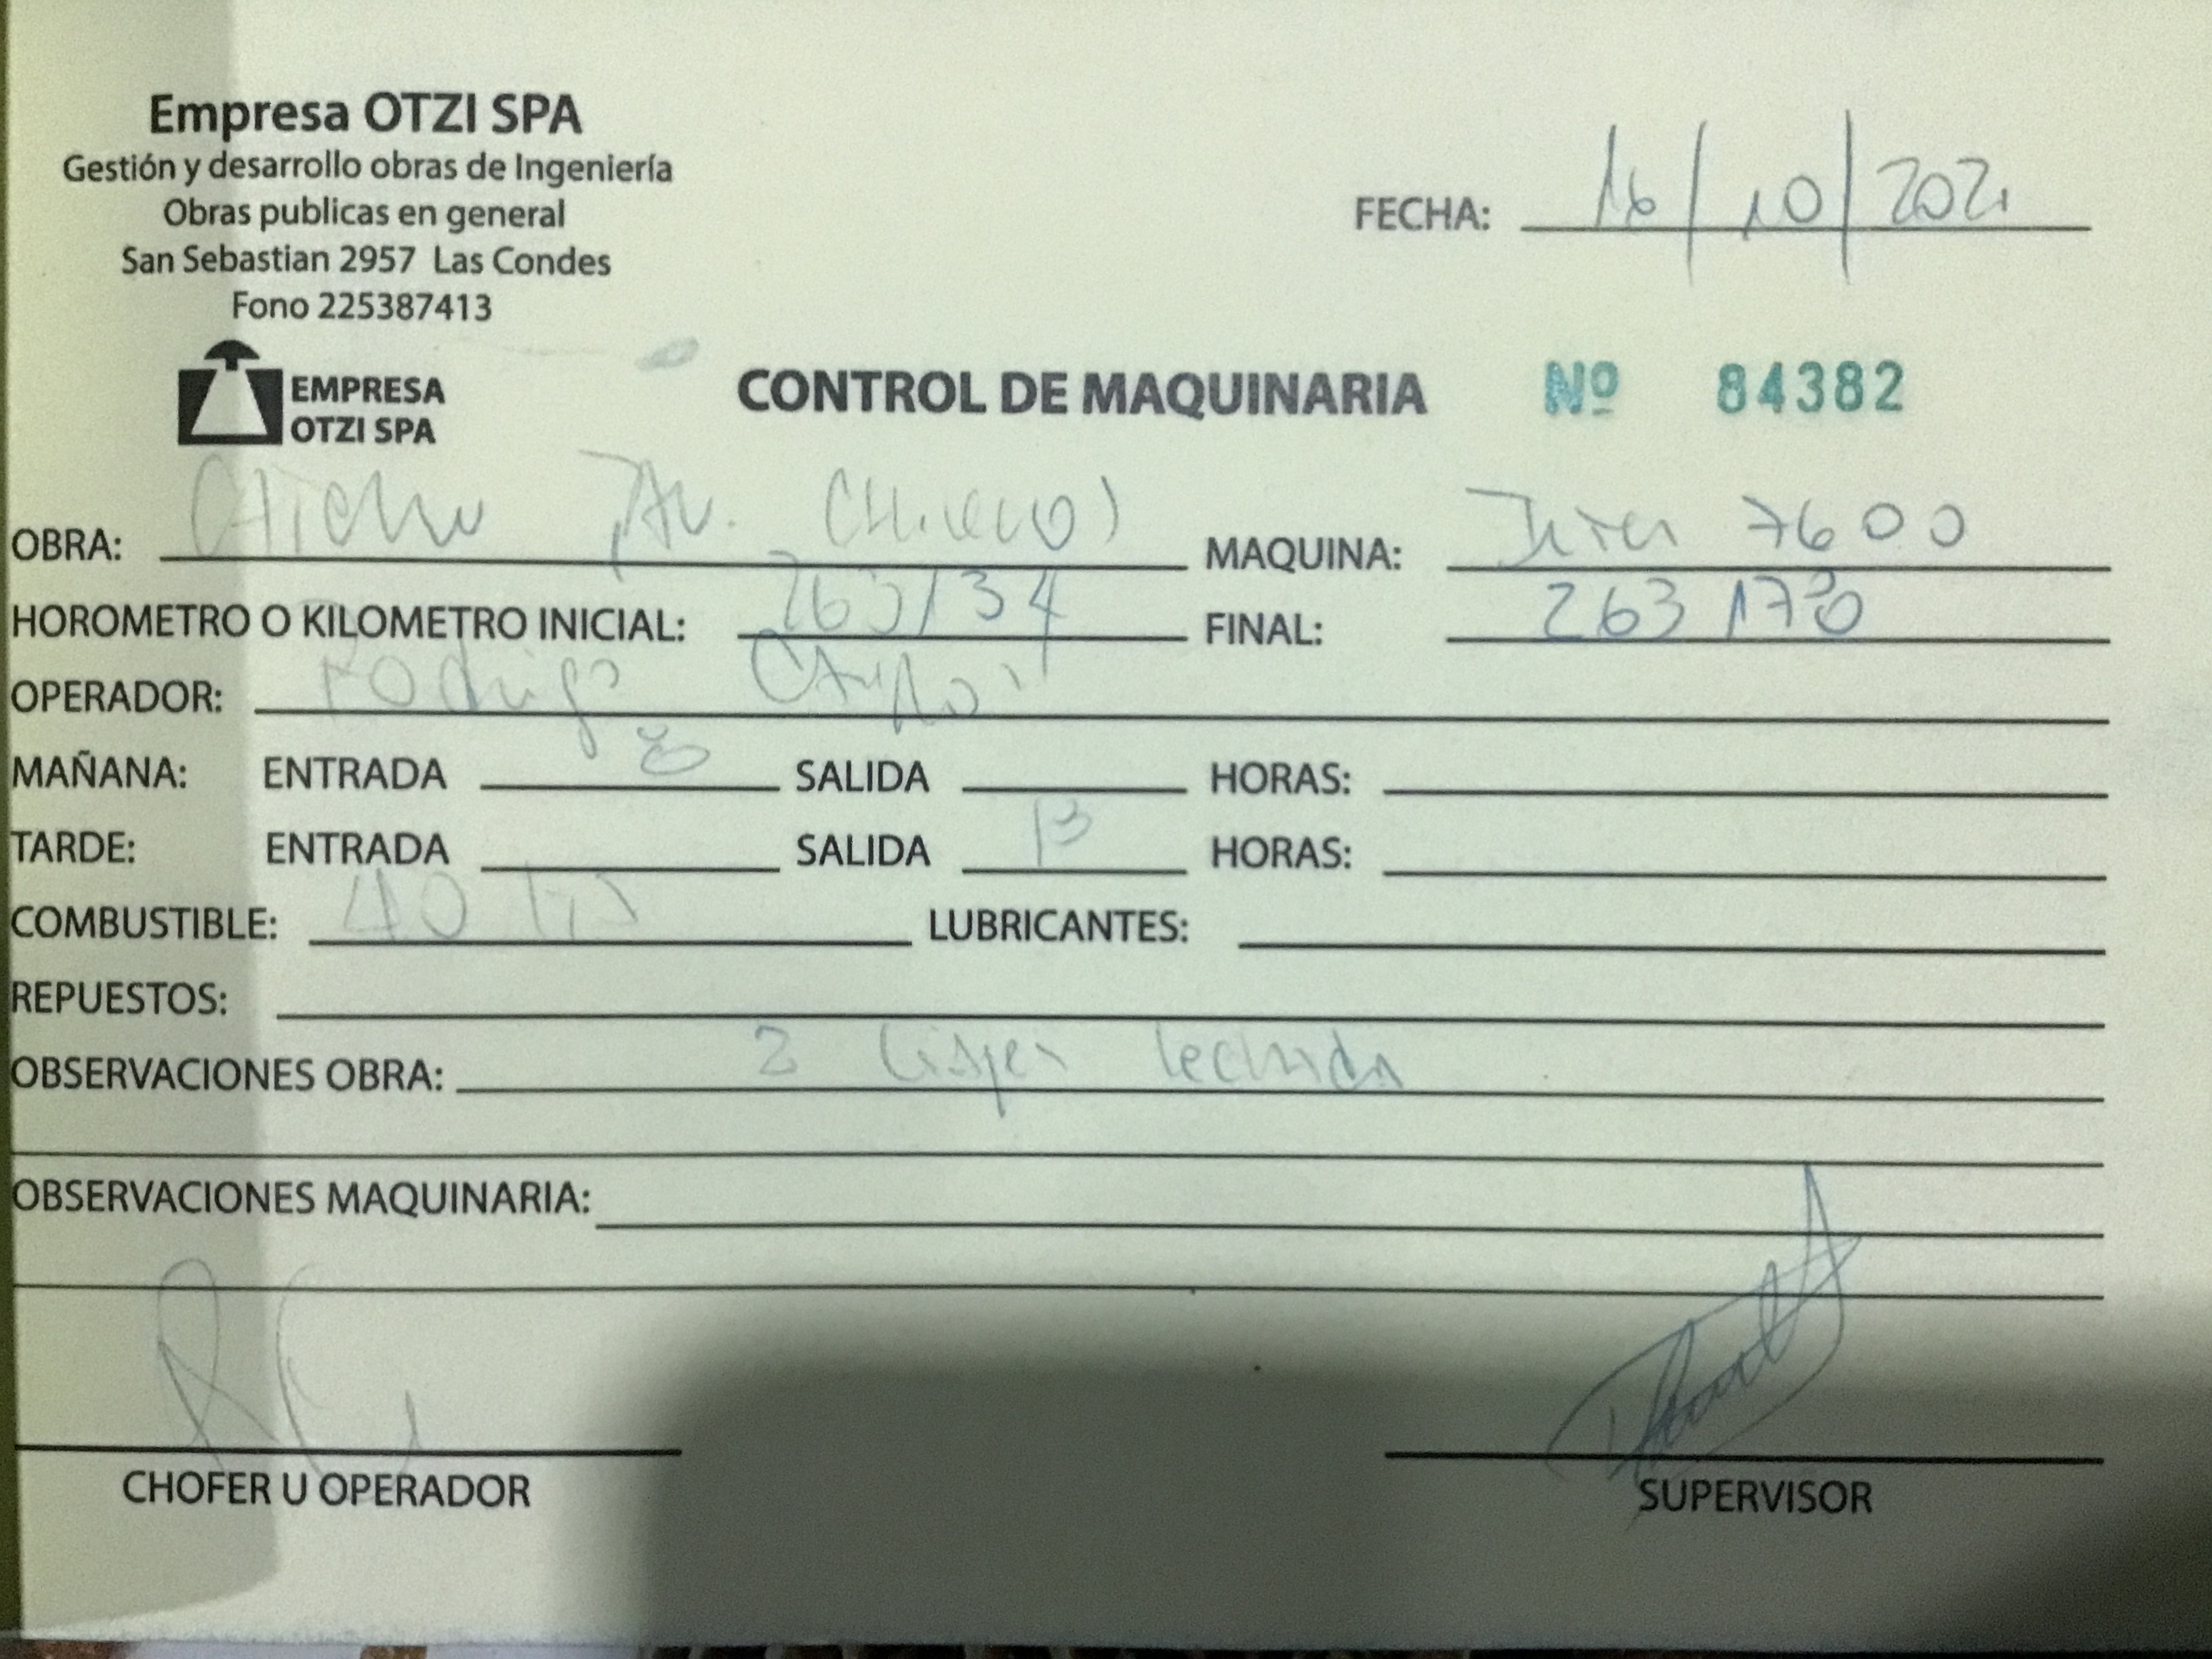 Empresa OTZI SPA
Gestión y desarrollo obras de Ingeniería
Obras publicas en general
San Sebastian 2957 Las Condes
Fono 225387413
FECHA: 16/10/2021
EMPRESA
OTZI SPA
CONTROL DE MAQUINARIA Nº 84382
OBRA: Av. MAQUINA: 7600
HOROMETRO O KILOMETRO INICIAL: 263134 FINAL: 263170
OPERADOR: Rodrigo
MAÑANA: ENTRADA 8 SALIDA HORAS:
TARDE: ENTRADA SALIDA 13 HORAS:
COMBUSTIBLE: 40 lts LUBRICANTES:
REPUESTOS:
OBSERVACIONES OBRA: lechada
OBSERVACIONES MAQUINARIA:
CHOFER U OPERADOR
SUPERVISOR